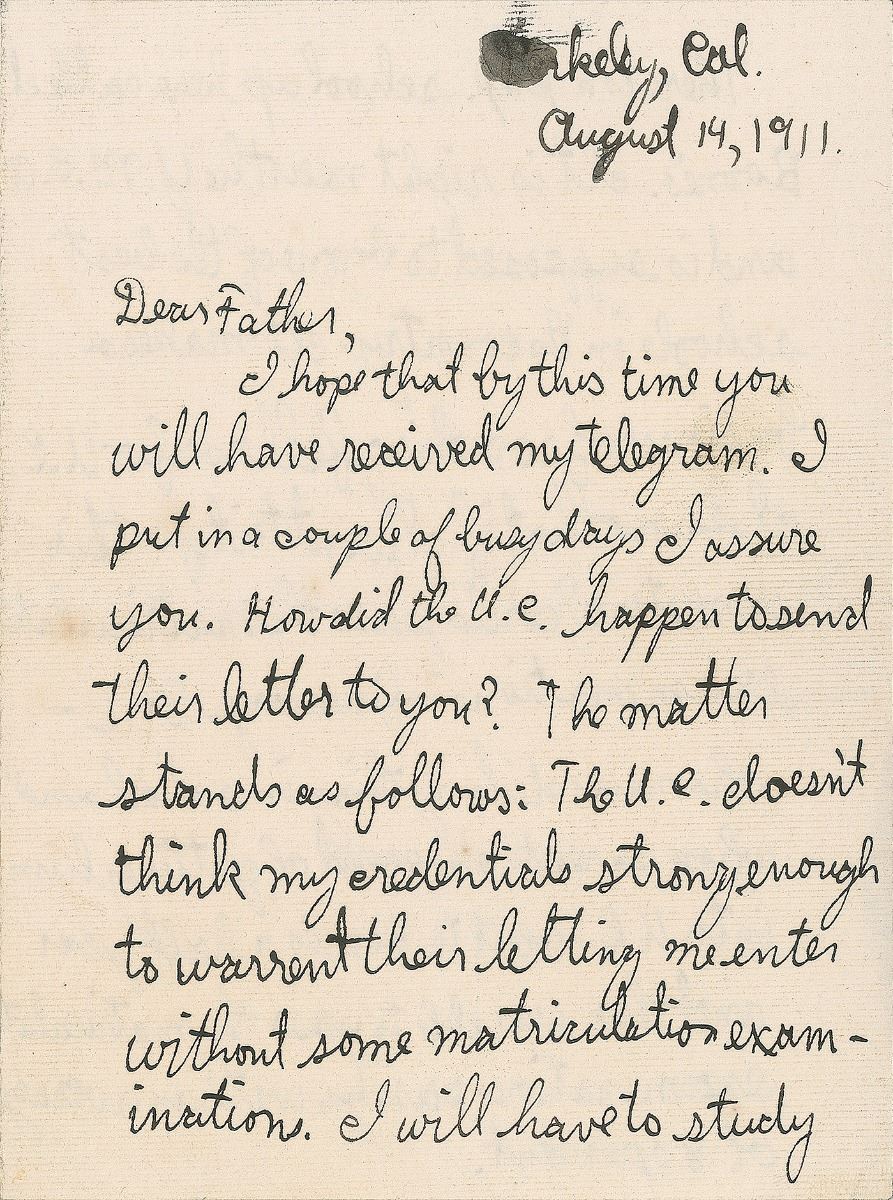 rkeley, Cal.
August 14, 1911.
Dear Father,
I hope that by this time you
will have received my telegram. I
put in a couple of busy days I assure
you. How did the U.C. happen to send
their letter to you? The matter
stands as follows: The U.C. doesn't
think my credentials strong enough
to warrent their letting me enter
without some matriculation exam-
inations. I will have to study